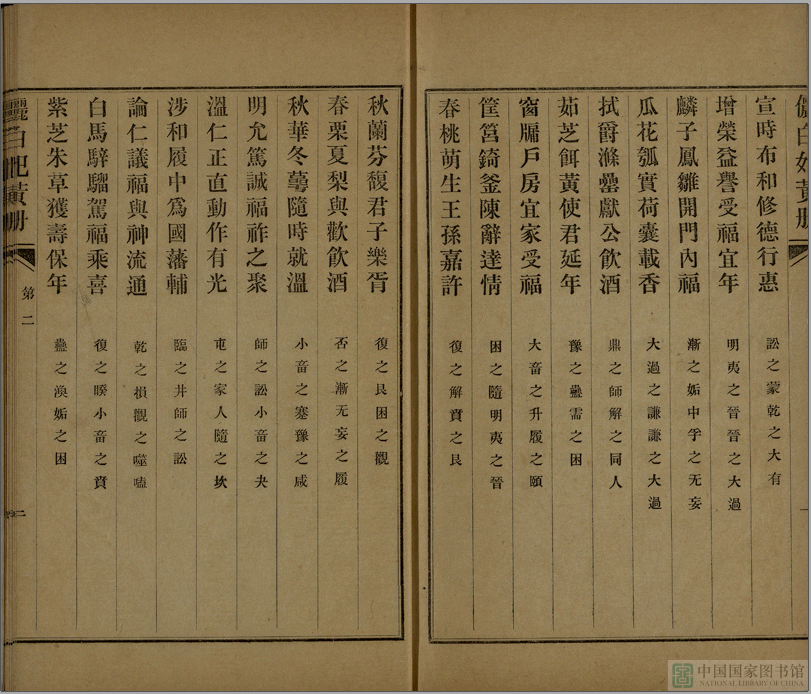 儷白妃黃册
宣時布和修德行惠 訟之蒙乾之大有
增榮益譽受福宜年 明夷之晉晉之大過
麟子鳳雛開門內福 漸之姤中孚之无妄
瓜花瓠實荷囊載香 大過之謙謙之大過
拭爵滌罍獻公飲酒 鼎之師解之同人
茹芝餌黃使君延年 豫之蠱需之困
窗牖戶房宜家受福 大畜之升履之頤
筐筥錡釜陳辭達情 困之隨明夷之晉
春桃萌生王孫嘉許 復之解賁之艮
秋蘭芬馥君子樂胥 復之艮困之觀
春栗夏梨與歡飲酒 否之漸无妄之履
秋華冬蕚隨時就溫 小畜之蹇豫之咸
明允篤誠福祚之聚 師之訟小畜之夬
溫仁正直動作有光 屯之家人隨之坎
涉和履中爲國藩輔 臨之井師之訟
論仁議福與神流通 乾之損觀之噬嗑
白馬騂騮駕福乘喜 復之睽小畜之賁
紫芝朱草獲壽保年 蠱之渙姤之困
儷白妃黃册 第二 二
中国国家图书馆
NATIONAL LIBRARY OF CHINA